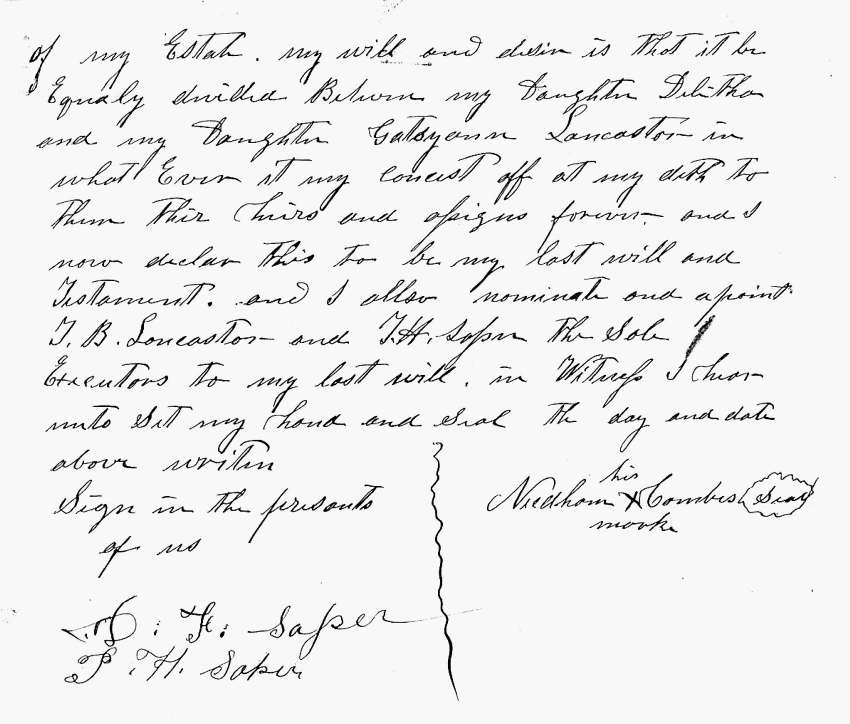 of my Estate. my will and desir is that it be
Equaly divided Between my Daughter Delitha
and my Daughter Gatsyann Lancaster in
what Ever it my concist off at my deth to
them thir heirs and assigns forever and I
now declar this to be my last will and
Testament. and I allso nominate and apoint
T. B. Lancaster and T.H. Saser the Sole
Executors to my last will. in Witness I hear
unto Set my hand and Seal the day and date
above writen
Sign in the presents
of us
his
Needham X Combes Seal
mark
D. F. Saser
P. H. Saser